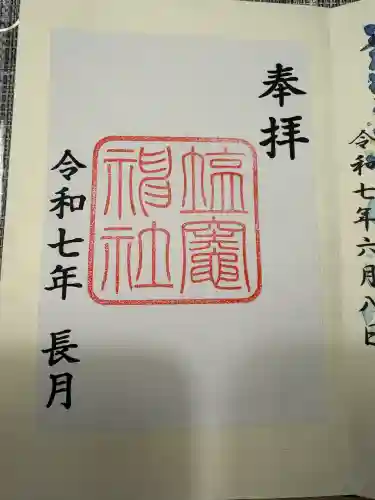 令和七年六月八日
奉拝
塩竈
神社
令和七年 長月